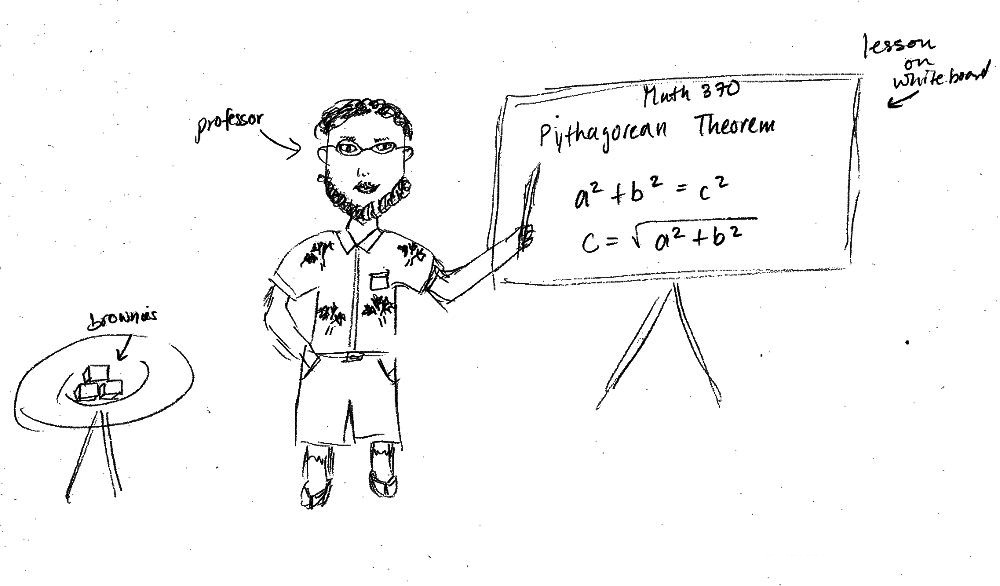 lesson
on
whiteboard
professor
Math 370
Pythagorean Theorem
a² + b² = c²
c = √a² + b²
brownies